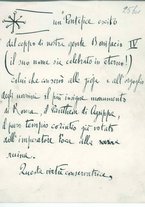 un Pontefice uscito
del ceppo di nostra gente Bonifacio IV
(il suo nome sia celebrato in eterno!)
colui che conservò alle gioje e all'orgoglio
degli uomini il più insigne monumento
di Roma, il Pantheon di Agrippa,
a quei tempi
dall'imperatore Foca alla
ruina.
Questa virtù conservatrice,